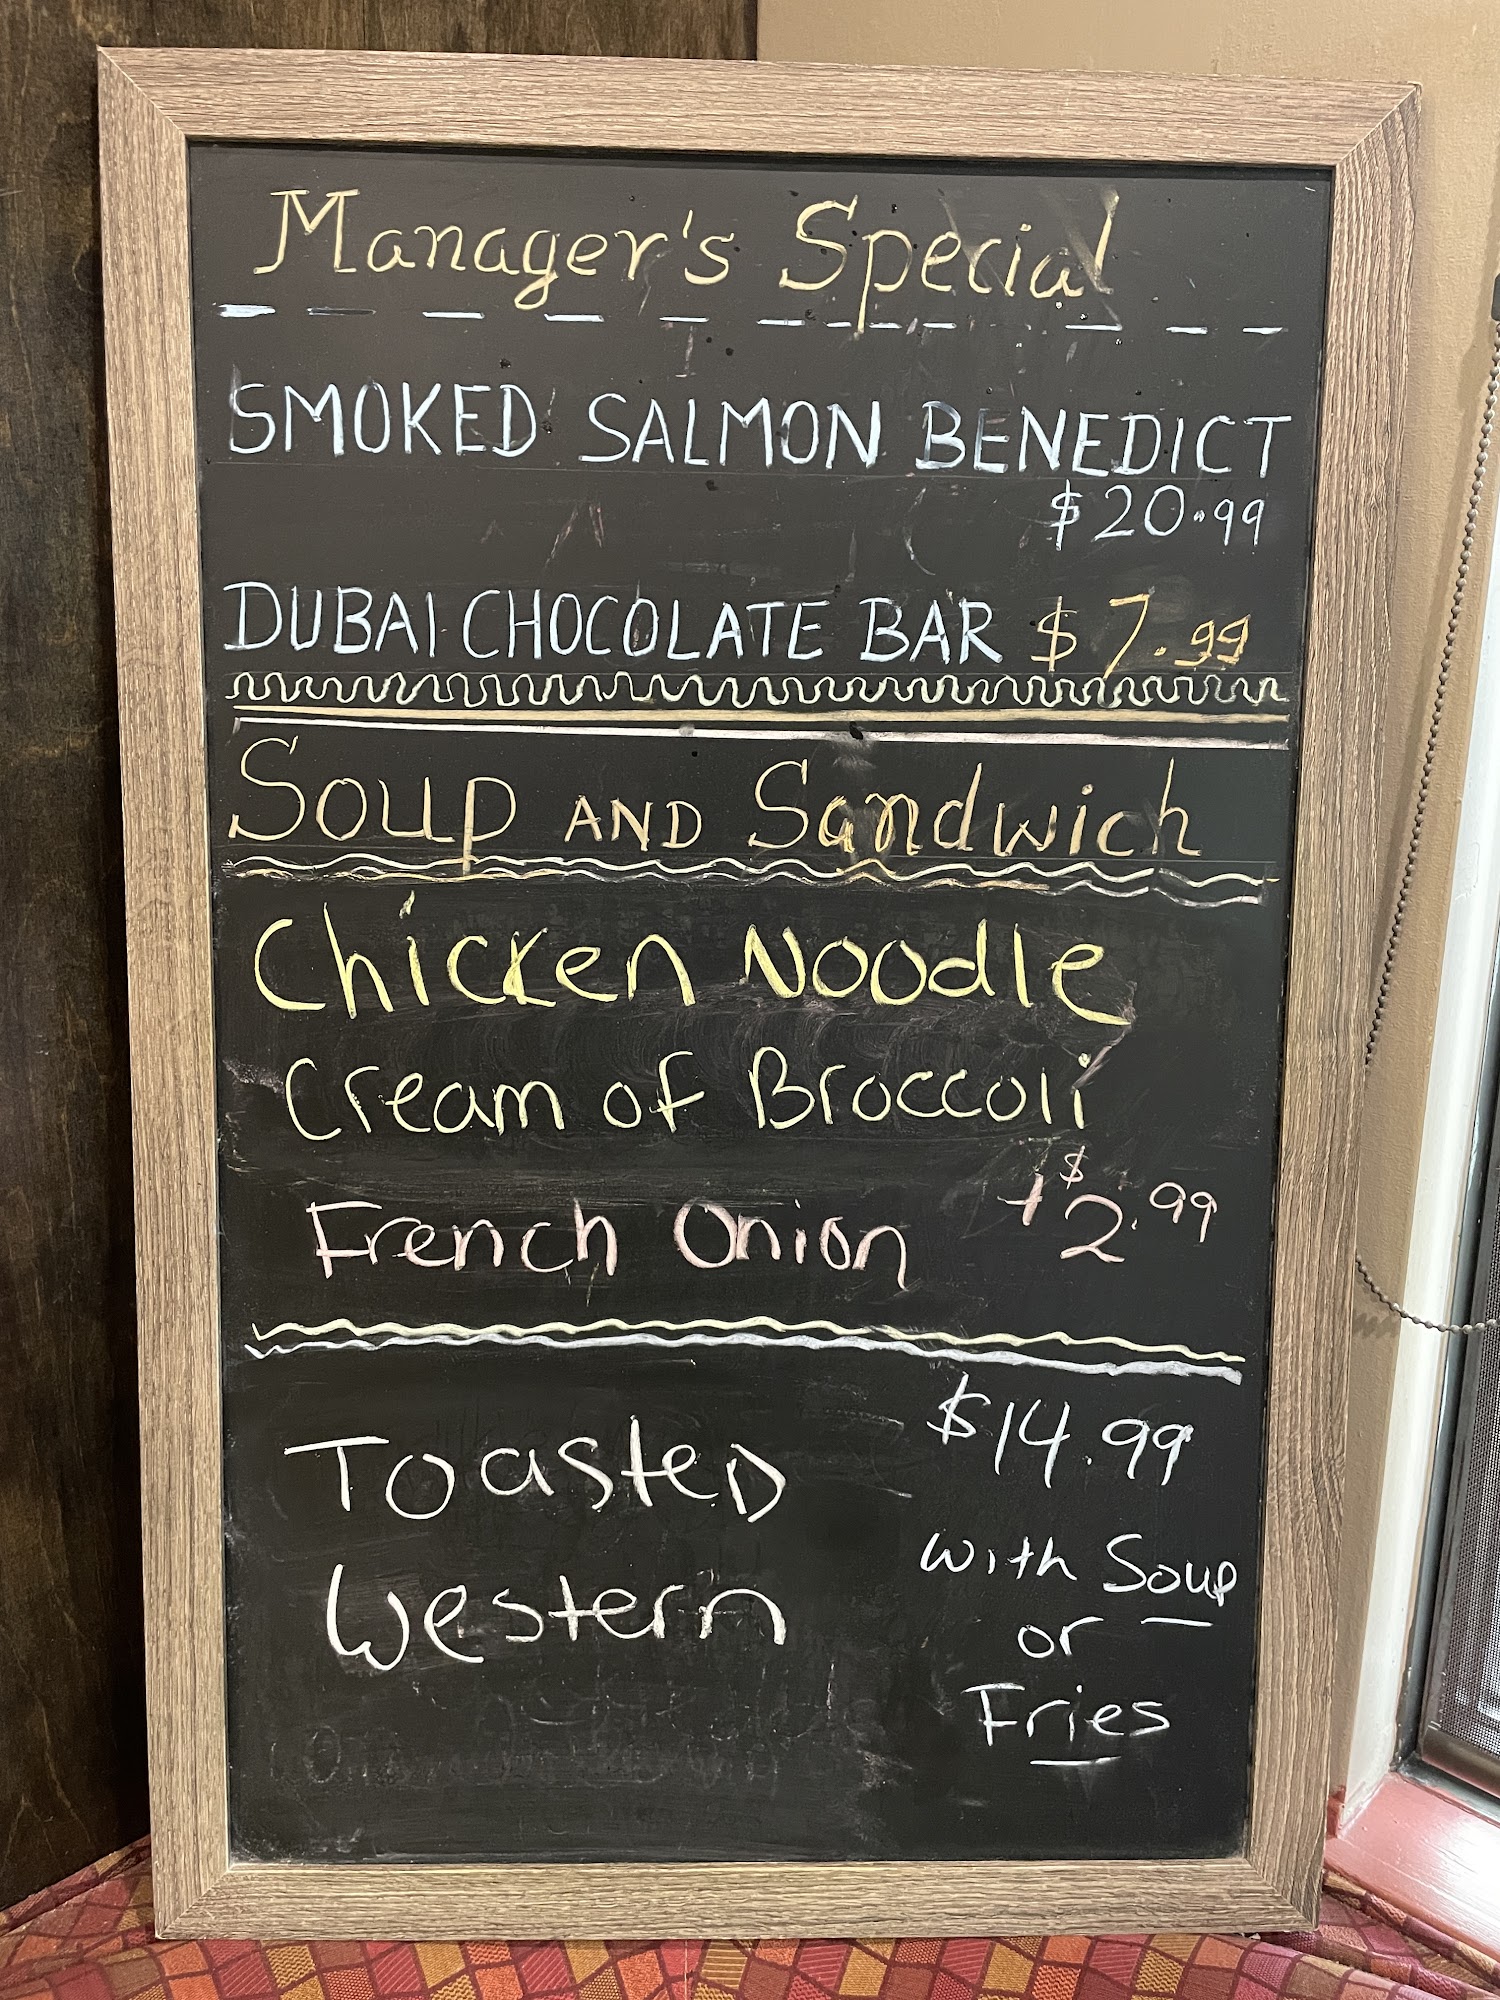 Manager's Special
SMOKED SALMON BENEDICT
$20.99
DUBAI CHOCOLATE BAR $7.99
Soup AND Sandwich
Chicken Noodle
Cream of Broccoli
French Onion +$2.99
Toasted
Western
$14.99
with Soup
or
Fries